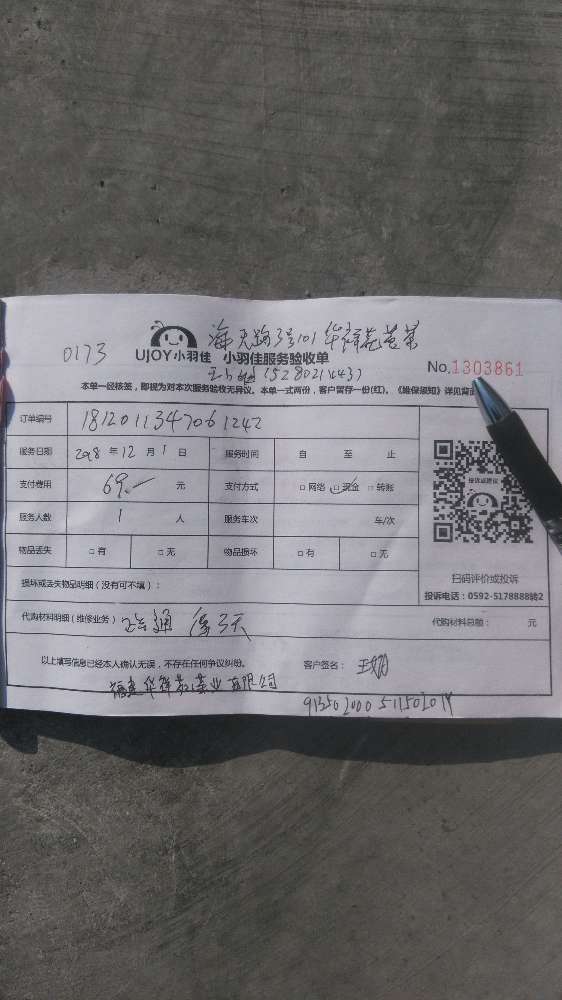 海天路3号101华祥苑茗茶
0173
UJOY小羽佳 小羽佳服务验收单
No.1303861
本单一经核签，即视为对本次服务验收无异议。本单一式两份，客户暂存一份(红)。《维保须知》详见背
订单编号 1812011347061242
服务日期 2018年12月1日 服务时间 自 至 止
支付费用 69.— 元 支付方式 □网络 □现金 □转账
服务人数 1 人 服务车次 车/次
物品丢失 □有 □无 物品损坏 □有 □无
损坏或丢失物品明细（没有可不填）：
扫码评价或投诉
投诉电话：0592-5178888转2
代购材料明细(维修业务) 通 代购材料总额： 元
以上填写信息已经本人确认无误，不存在任何争议纠纷。 客户签名：
福建华祥苑茶业有限公司